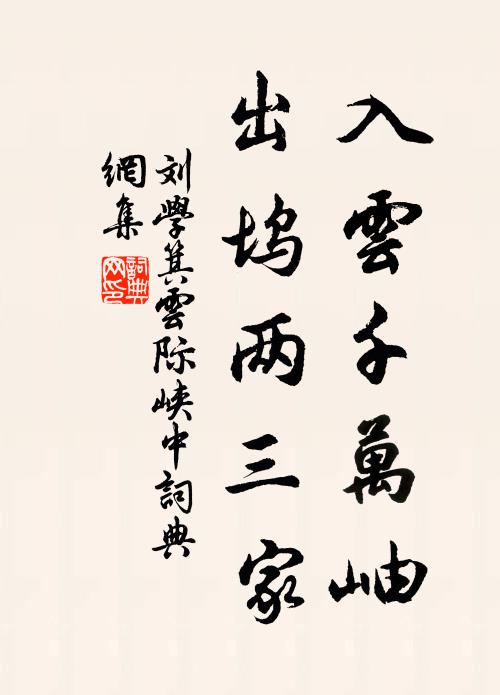 入雲千萬岫
出坞两三家
刘學箕雲际峡中詞典
網集
詞典
网印